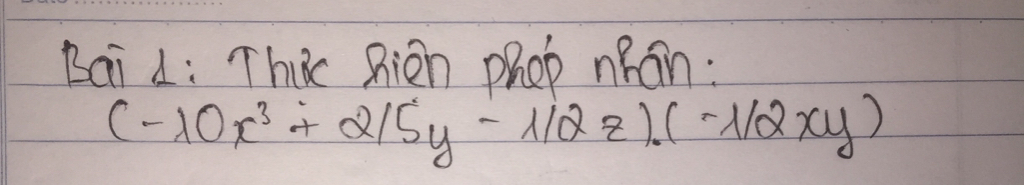 Bài 1: Thực hiện phép nhân:
(-10x³ + 2/5y - 1/2z).(-1/2xy)